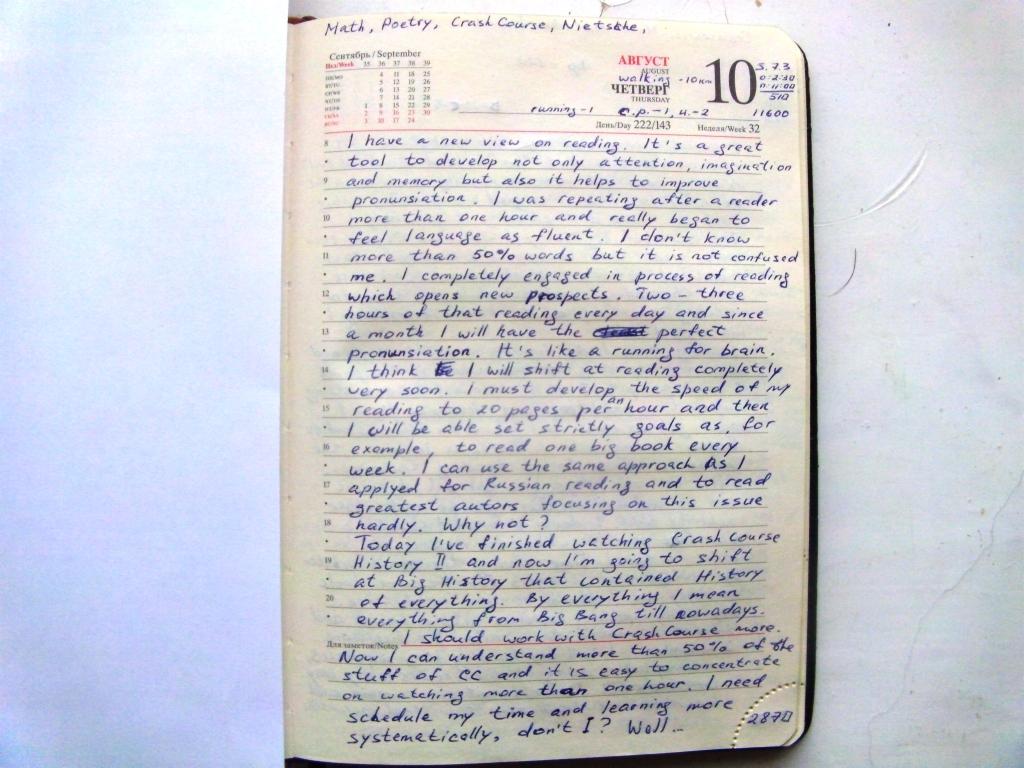 Math, Poetry, Crash Course, Nietsche,
Сентябрь / September
Нед/Week 35 36 37 38 39
4 11 18 25
5 12 19 26
6 13 20 27
7 14 21 28
1 8 15 22 29
2 9 16 23 30
3 10 17 24
АВГУСТ
AUGUST
walking -10км
ЧЕТВЕРГ
THURSDAY
10
S. 7.3
0:2:30
n:11:00
510
11600
running-1 e.p.-1, u.-2
День/Day 222/143 Неделя/Week 32
8 I have a new view on reading. It's a great
tool to develop not only attention, imagination
9 and memory but also it helps to improve
pronunsiation. I was repeating after a reader
10 more than one hour and really began to
feel language as fluent. I don't know
11 more than 50% words but it is not confused
me. I completely engaged in process of reading
12 which opens new prospects. Two - three
hours of that reading every day and since
13 a month I will have the perfect
pronunsiation. It's like a running for brain.
14 I think I will shift at reading completely
very soon. I must develop the speed of my
15 reading to 20 pages per an hour and then
I will be able set strictly goals as, for
16 exemple, to read one big book every
week. I can use the same approach as I
17 applyed for Russian reading and to read
greatest autors focusing on this issue
18 hardly. Why not?
Today I've finished watching Crash Course
19 History II and now I'm going to shift
at Big History that contained History
20 of everything. By everything I mean
everything from Big Bang till nowadays.
I should work with Crash Course more.
Для заметок/Notes
Now I can understand more than 50% of the
stuff of CC and it is easy to concentrate
on watching more than one hour. I need
schedule my time and learning more
systematically, don't I? Well...